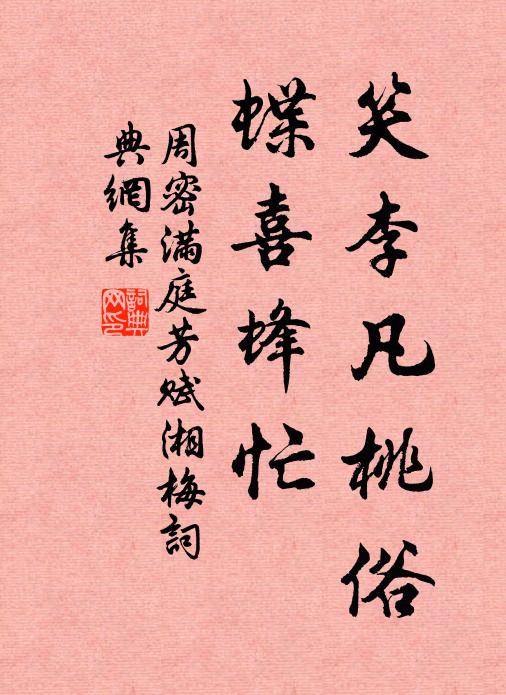 笑李凡桃俗
蝶喜蜂忙
周密满庭芳赋湘梅詞
典網集
詞典網印